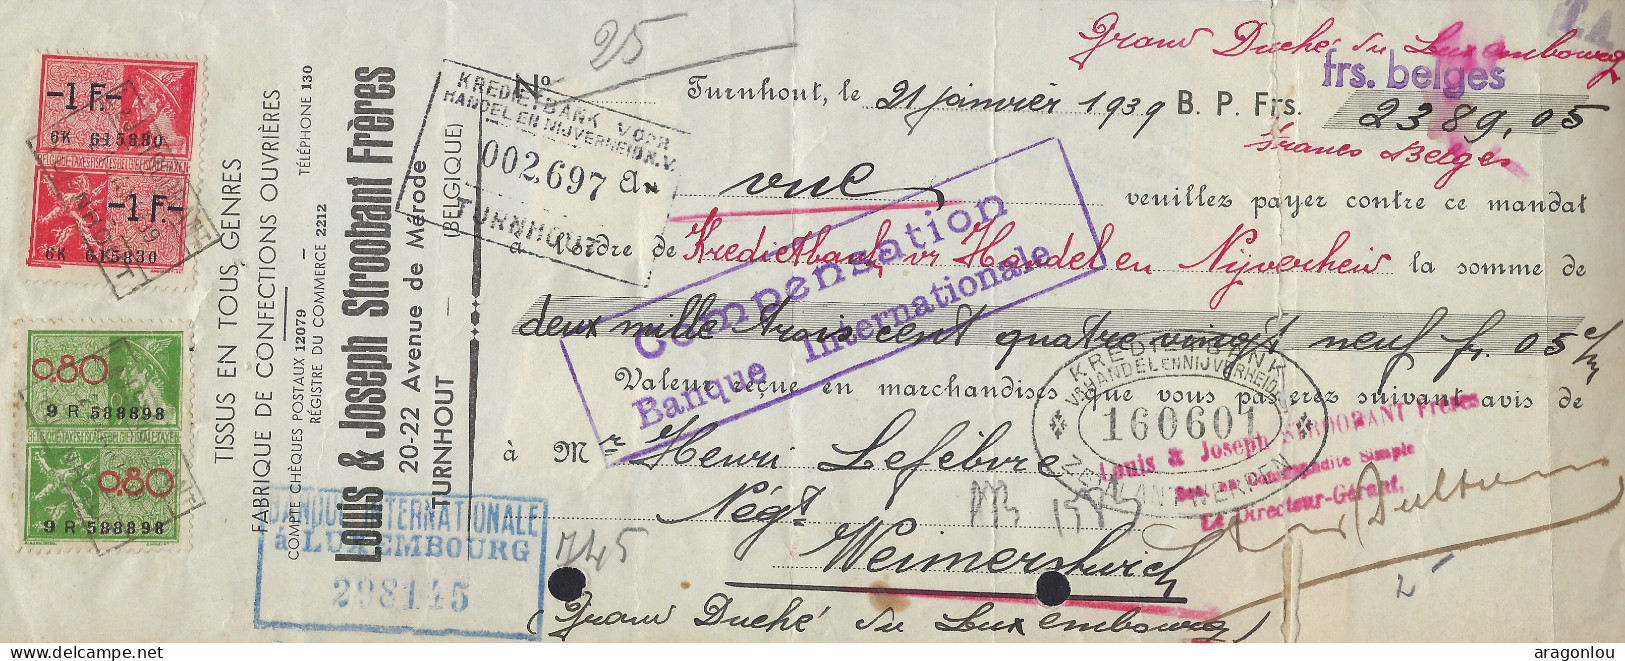 -1 F.-
6K 615830
BELGIQUE-TAXES FISCALES
-1 F.-
6K 615830
0.80
9 R 588898
0.80
9 R 588898
TISSUS EN TOUS GENRES
FABRIQUE DE CONFECTIONS OUVRIÈRES
COMPTE CHÈQUES POSTAUX 12079 — TÉLÉPHONE 130
RÉGISTRE DU COMMERCE 2212
Louis & Joseph Stroobant Frères
20-22 Avenue de Mérode
TURNHOUT — (BELGIQUE)
25
Grand Duché du Luxembourg
frs. belges
No
Turnhout, le 21 janvier 1939 B. P. Frs. 2389,05
francs Belges
KREDIETBANK VOOR
HANDEL EN NIJVERHEID N.V.
002.697
TURNHOUT
vue veuillez payer contre ce mandat
à l'ordre de Kredietbank vr Handel en Nijverheid la somme de
Compensation
Banque Internationale
deux mille trois cent quatre vingt neuf fr. 05 c/m
Valeur reçue en marchandises que vous passerez suivant avis de
KREDIETBANK
V. HANDEL EN NIJVERHEID
160601
ZETEL ANTWERPEN
Louis & Joseph STROOBANT Frères
Soc. en Commandite Simple
Le Directeur-Gérant,
à Mr Henri Lefèbvre
Négt
Weimerskirch
(Grand Duché du Luxembourg)
BANQUE INTERNATIONALE
à LUXEMBOURG
298145
745
aragonlou